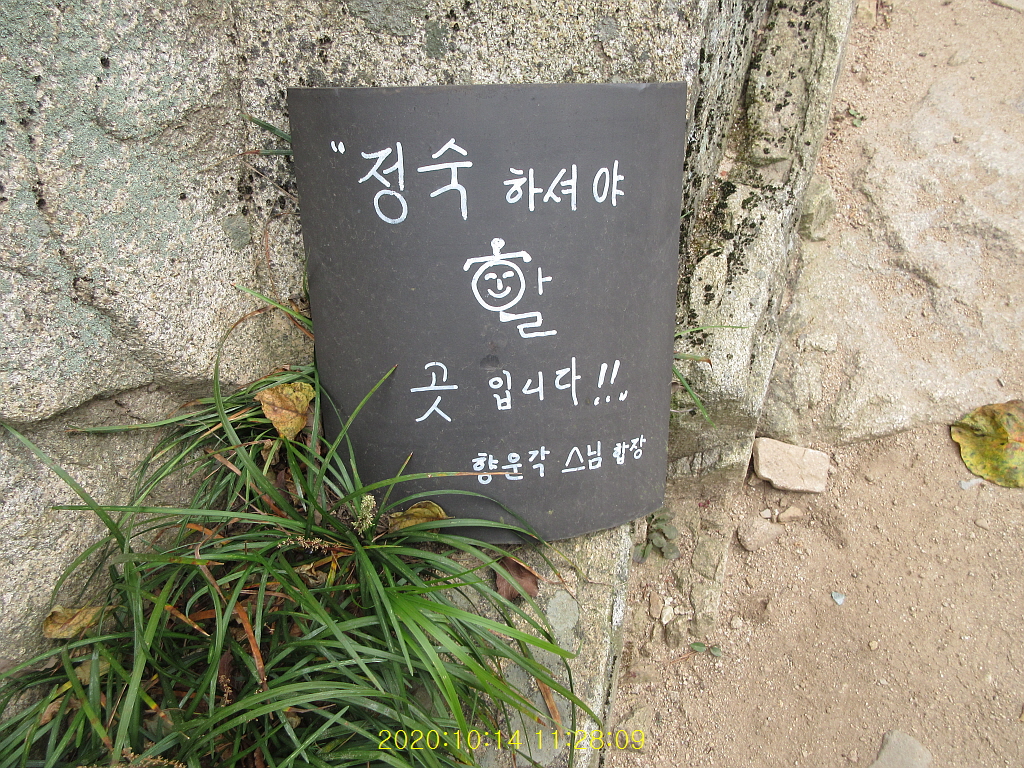 "정숙 하셔야
할
곳 입니다!!,
향운각 스님 합장
2020:10:14 11:28:09